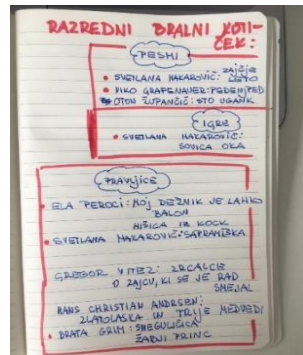 RAZREDNI BRALNI KOTI-
ČEK:
PESMI
• SVETLANA MAKAROVIČ: ZAJČJE
LETO
• NIKO GRAFENAUER: PEDENJPED
• OTON ŽUPANČIČ: STO UGANK
IGRE
• SVETLANA MAKAROVIČ:
SOVICA OKA
PRAVLJICE
• ELA PEROCI: MOJ DEŽNIK JE LAHKO
BALON
HIŠICA IZ KOCK
• SVETLANA MAKAROVIČ: SAPRAMIŠKA
GREGOR VITEZ: ZRCALCE
O ZAJCU, KI SE JE RAD
SMEJAL
HANS CHRISTIAN ANDRSEN:
ZLATOLASKA IN TRIJE MEDVEDI
• BRATA GRIM: SNEGULČICA
ŽABJI PRINC